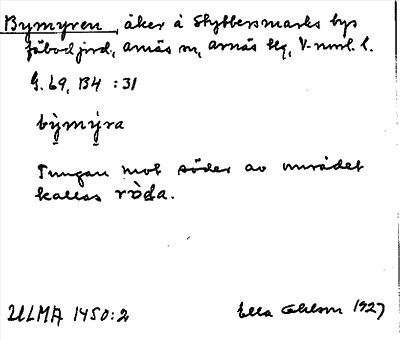 Bymyren, åker å Skyttersmarks bys
fäbodjord, Arnäs sn, Arnäs tlg, V-norrl. l.
G. 69, B4 : 31
bỳmýra
Tungan mot söder av området
kallas ròda.
ULMA 1450:2 Ella Ohlson 1927